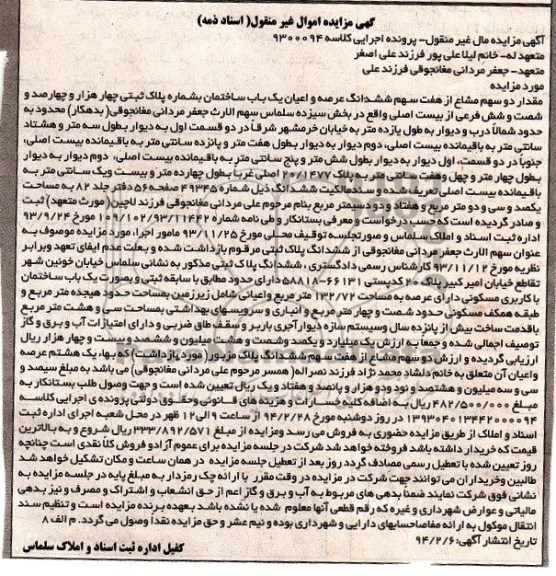 آگهی مزایده اموال غیر منقول( اسناد ذمه)
آگهی مزایده مال غیر منقول- پرونده اجرایی کلاسه ۹۳۰۰۰۹۴
متعهد له- خانم لیلا علی پور فرزند علی اصغر
متعهد- جعفر مردانی مغانجوقی فرزند علی
مورد مزایده
مقدار دو سهم مشاع از هفت سهم ششدانگ عرصه و اعیان یک باب ساختمان بشماره پلاک ثبتی چهار هزار و چهارصد و
شصت و شش فرعی از بیست اصلی واقع در بخش سیزده سلماس سهم الارث جعفر مردانی مغانجوقی(بدهکار) محدود به
حدود شمالاً درب و دیوار به طول یازده متر به خیابان خرمشهر شرقاً در دو قسمت اول به دیوار بطول سه متر و هشتاد
سانتی متر به باقیمانده بیست اصلی، دوم دیوار به دیوار بطول هفت متر و پانزده سانتی متر به باقیمانده بیست اصلی،
جنوباً در دو قسمت، اول دیوار به دیوار بطول شش متر و پنج سانتی متر به باقیمانده بیست اصلی، دوم دیوار به دیوار
بطول چهار متر و چهل وهفت سانتی متر به پلاک ۱۴۷۷/ ۲۰ اصلی غرباً بطول چهارده متر و بیست ویک سانتی متر به
باقیمانده بیست اصلی تعریف شده و سند مالکیت ششدانگ ذیل شماره ۴۹۳۴۵ صفحه ۵۶ دفتر جلد ۸۲ به مساحت
یکصد و سی و دو متر مربع و هفتاد و دو دسیمتر مربع بنام مرحوم علی مردانی مغانجوقی فرزند لاچین(مورث متعهد) ثبت
و صادر گردیده است که حسب درخواست و معرفی بستانکار و طی نامه شماره ۱۰۹/۱۰۲/۹۳/۱۱۴۲۲ مورخ ۹۳/۹/۲۴
اداره ثبت اسناد و املاک سلماس و صورتجلسه توقیف محلی مورخ ۹۳/۱۱/۲۵ مامور اجرا، مورد مزایده موصوف به
عنوان سهم الارث جعفر مردانی مغانجوقی از ششدانگ پلاک ثبتی مرقوم بازداشت شده و بعلت عدم ایفای تعهد وبرابر
نظریه مورخ ۹۳/۱۱/۱۲ کارشناس رسمی دادگستری ، ششدانگ پلاک ثبتی مذکور به نشانی سلماس خیابان خوئین شهر
تقاطع خیابان امیر کبیر پلاک ۲۰ کدپستی ۶۶۱۳۱-۵۸۸۱۸ دارای حدود مطابق با سابقه ثبتی و بصورت یک باب ساختمان
با کاربری مسکونی دارای عرصه به مساحت ۱۳۲/۷۲ متر مربع واعیانی شامل زیرزمین بمساحت حدود هیجده متر مربع و
طبقه همکف مسکونی حدود شصت و چهار متر مربع و انباری و سرویسهای بهداشتی بمساحت سی و هشت متر مربع
باقدمت ساخت بیش از پانزده سال وسیستم سازه دیوارآجری باربر و سقف طاق ضربی و دارای امتیازات آب و برق و گاز
توصیف اجمالی شده و جمعاً به ارزش یک میلیارد و یکصد وشصت و هشت میلیون و ششصد وبیست و چهار هزار ریال
ارزیابی گردیده و ارزش دو سهم مشاع از هفت سهم ششدانگ پلاک مزبور(مورد بازداشت) که بهاء یک هشتم عرصه
واعیان آن متعلق به خانم دلشاد محمد نژاد فرزند نصراله(همسر مرحوم علی مردانی مغانجوقی) می باشد به مبلغ سیصد و
سی و سه میلیون و هشتصد و نود و دو هزار و پانصد و هفتاد و یک ریال تعیین شده است و جهت وصول طلب بستانکار به
مبلغ ۴۸۲/۵۰۰/۰۰۰ ریال به اضافه کلیه خسارات و هزینه های قانونی وحقوق دولتی پرونده ی اجرایی کلاسه
۱۳۹۳۰۴۰۱۳۴۴۲۰۰۰۰۹۴ در روز دوشنبه مورخ ۹۴/۲/۲۸ از ساعت ۹ الی ۱۲ ظهر در محل شعبه اجرای اداره ثبت
اسناد و املاک از طریق مزایده حضوری به فروش می رسد ومزایده از مبلغ ۳۳۳/۸۹۲/۵۷۱ ریال شروع و به بالاترین
قیمت که خریدار داشته باشد فروخته خواهد شد شرکت در جلسه مزایده برای عموم آزاد و فروش کلاً نقدی است چنانچه
روز تعیین شده با تعطیل رسمی مصادف گردد روز بعد از تعطیل جلسه مزایده در همان ساعت و مکان تشکیل خواهد شد
طالبین وخریداران می توانند جهت شرکت در مزایده در وقت مقرر با ارائه چک رمزدار به مبلغ پایه در جلسه مزایده به
نشانی فوق شرکت نمایند ضمناً بدهی های مربوط به آب و برق و گاز اعم از حق انشعاب و اشتراک و مصرف و نیز بدهی
مالیاتی و عوارض شهرداری و غیره که رقم قطعی آنها معلوم شده یا نشده باشد بعهده برنده مزایده است و تنظیم سند
انتقال موکول به ارائه مفاصاحسابهای دارایی و شهرداری بوده و نیم عشر و حق مزایده نقداً وصول می گردد. م الف ۸
تاریخ انتشار آگهی: ۹۴/۲/۶
کفیل اداره ثبت اسناد و املاک سلماس